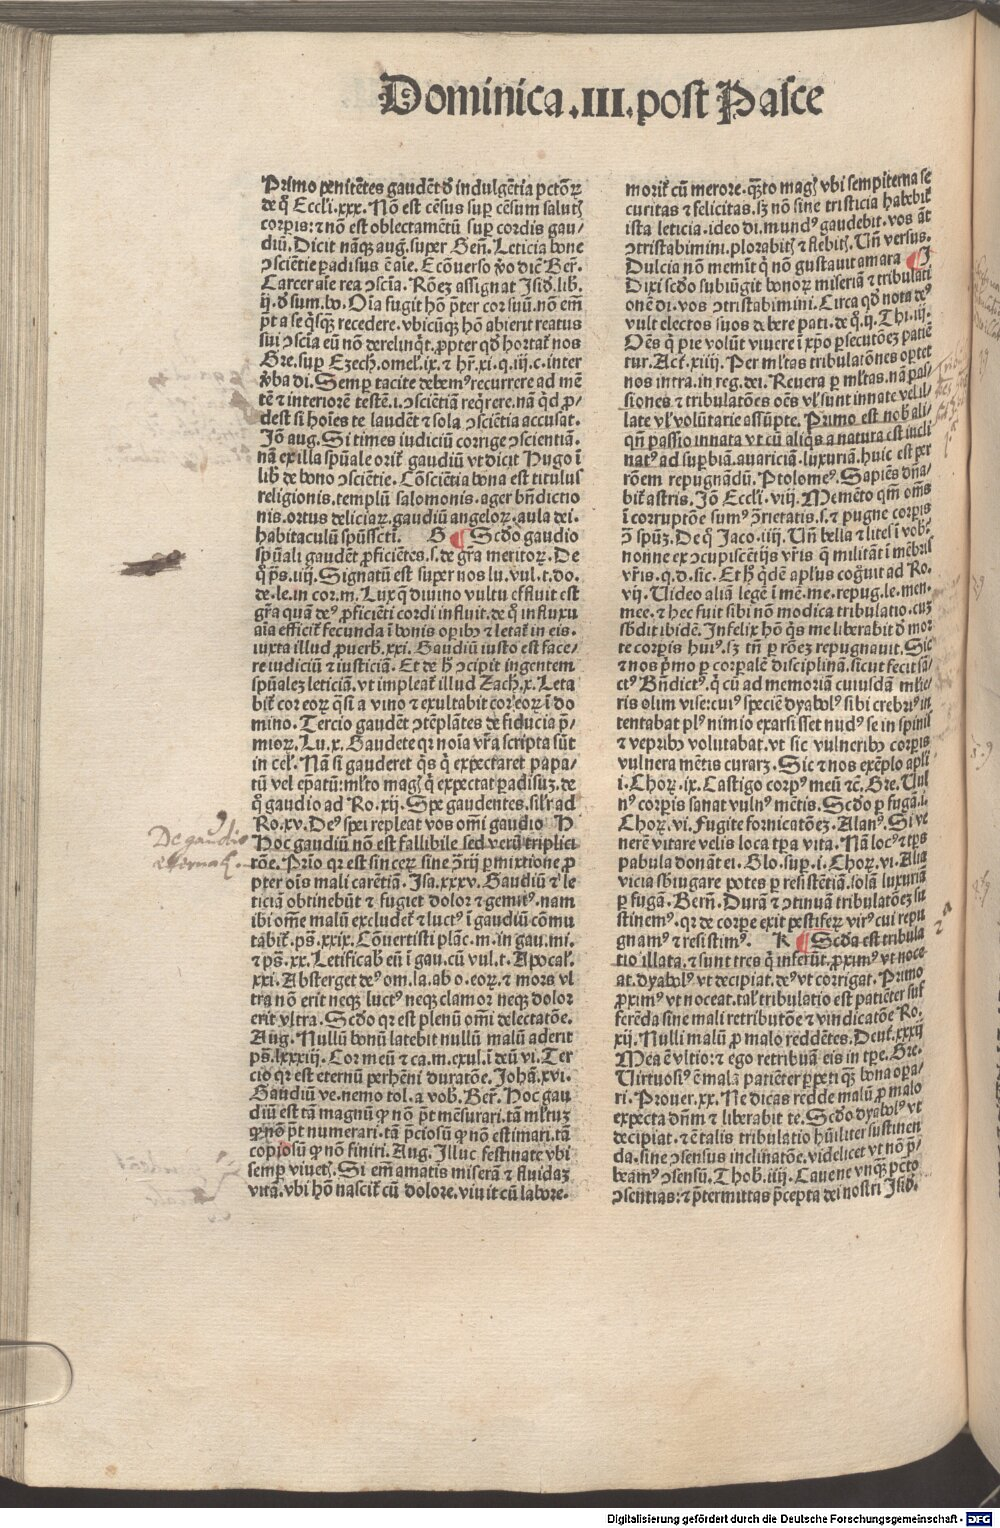 Dominica .III. post Pasce
Primo penitētes gaudēt d̄ indulgētia pctōꝝ
de q̄ Eccłi.xxx. Nō est cēsus sup̄ cēsum salutꝭ
corpis: ⁊ nō est oblectamētū sup̄ cordis gau/
diū. Dicit nāqꝫ auḡ. super Geñ. Leticia bone
ↄsciētie padisus ē aīe. Ecōuerso ꝟo dic̄ Ber̄.
Carcer aīe rea ↄscīa. Rōeꝫ assignat Isid̄. lib̄.
ij. d̄ sum. bo. Oīa fugit hō p̄ter cor suū. nō em̄
p̄t a se q̄sqꝫ recedere. vbicūqꝫ hō abierit reatus
sui ↄscīa eū nō derelinq̄t. ꝓpter qd̄ hortat᷑ nos
Gre. sup̄ Ezech̄. omel̄. ix. ⁊ hr̄. xi. q. iij. c. inter
ꝟba di. Semp̄ tacite debemꝰ recurrere ad mē
tē ⁊ interiorē testē. i. ↄsciētiā req̄rere. nā q̄d ꝓ/
dest si hoīes te laudēt ⁊ sola ↄsciētia accusat.
Jō aug. Si times iudiciū corrige ↄscientiā.
nā ex illa spūale orit᷑ gaudiū vt dicit Hugo ī
lib̄ de bono ↄsciētie. Cōsciētia bona est titulus
religionis. templū salomonis. ager bn̄dictio
nis. ortus deliciaꝝ. gaudiū angeloꝝ. aula dei.
habitaculū spūssctī. G ¶ Scdo gaudio
spūali gaudēt ꝓficiētes. s. de gr̄a meritoꝝ. De
q̄ p̄s. iiij. Signatū est super nos lu. vul. t. do.
de. le. in cor. m. Lux q̄ diuino vultu effluit est
gr̄a quā deꝰ ꝓficiēti cordi influit. de q̄ influxu
aīa efficit᷑ fecunda ī bonis opibꝰ ⁊ letat᷑ in eis.
iuxta illud ꝓuerb̄. xxi. Gaudiū iusto est face/
re iudiciū ⁊ iusticiā. Et de h̄ ↄcipit ingentem
spūalez leticiā. vt impleat᷑ illud Zach̄. x. Leta
bit᷑ cor eoꝝ q̄si a vino ⁊ exultabit cor eoꝝ ī do
mino. Tercio gaudēt ↄtēplātes de fiducia p̄/
mioꝝ. Lu. x. Gaudete qꝛ noīa vr̄a scripta sūt
in cel̄. Nā si gauderet q̄s q̄ expectaret papa/
tū vel epatū: ml̄to magꝭ q̄ expectat padisuꝫ. de
q̄ gaudio ad Ro. xij. Spe gaudentes. sil̄r ad
Ro. xv. Deꝰ spei repleat vos om̄i gaudio H
Hoc gaudiū nō est fallibile sed verū triplici
rōe. Prīo qꝛ est sinceꝝ sine ↄ̄rij pmixtione ꝓ
pter oīs mali carētiā. Isa. xxxv. Gaudiū ⁊ le
ticiā obtinebūt ⁊ fugiet dolor ⁊ gemitꝰ. nam
ibi om̄e malū excludet᷑ ⁊ luctꝰ ī gaudiū cōmu
tabit᷑. ps̄. xxix. Cōuertisti plāc. m. in gau. mi.
⁊ ps̄. xx. Letificab̄ eū ī gau. cū vul. t. Apocal̄.
xxi. Absterget deꝰ om. la. ab o. eoꝝ. ⁊ mors vl
tra nō erit neqꝫ luctꝰ neqꝫ clamor neqꝫ dolor
erit vltra. Scdo qꝛ est plenū om̄i delectatōe.
Aug. Nullū bonū latebit nullū malū aderit
ps̄. lxxxiij. Cor meū ⁊ ca. m. exul. ī deū vi. Ter
cio qꝛ est eternū perhēni duratōe. Johā. xvi.
Gaudiū ve. nemo tol. a vob̄. Ber̄. Hoc gau
diū est tā magnū ꝙ nō p̄t mēsurari. tā ml̄tuꝫ
ꝙ nō p̄t numerari. tā p̄ciosū ꝙ nō estimari. tā
copiosū ꝙ nō finiri. Aug. Illuc festinate vbi
semp̄ viuetꝭ. Si em̄ amatis miserā ⁊ fluidaꝫ
vitā. vbi hō nascit᷑ cū dolore. viuit cū labore.
De gaudio
eternali.
morit᷑ cū merore. q̄to magꝭ vbi sempiterna se
curitas ⁊ felicitas. sꝫ nō sine tristicia habebit᷑
ista leticia. ideo di. mundꝰ gaudebit. vos āt
ↄtristabimini. plorabitꝭ ⁊ flebitꝭ. Vn̄ versus.
Dulcia nō memīt q̄ nō gustauit amara ¶ I
Dixi scdo subiūgit bonoꝝ miseriā ⁊ tribulati
onē di. vos ↄtristabimini. Circa qd̄ nota deꝰ
vult electos suos debere pati. de q̄. ij. Thi. iij.
Oēs q̄ pie volūt viuere ī xp̄o ꝑsecutōeꝫ patiē
tur. Act᷑. xiiij. Per ml̄tas tribulatōnes optet
nos intra. in reg. dei. Reuera ꝑ ml̄tas. nā pas/
siones ⁊ tribulatōes oēs vl̄ sunt innate vel il/
late vl̄ volūtarie assūpte. Primo est nob̄ ali/
qn̄ passio innata vt cū aliq̄s a natura est incli
natꝰ ad supbiā. auariciā. luxuriā. huic est per
rōem repugnādū. Ptolomeꝰ. Sapiēs dn̄a/
bit᷑ astris. Jō Eccłi. viij. Memēto qm̄ om̄s
ī corruptōe sumꝰ ↄ̄rietatis. s. ⁊ pugne corpis
ↄ̄ spūꝫ. De q̄ Jaco. iiij. Vn̄ bella ⁊ lites ī vob̄.
nonne ex ↄcupiscētijs vr̄is q̄ militāt ī mēbris
vr̄is. q. d. sic. Et hꝰ q̄dē apl̄us coḡuit ad Ro.
vij. Video aliā legē ī mē. me. repug. le. men.
mee. ⁊ hec fuit sibi nō modica tribulatio. cuꝫ
sb̄dit ibidē. Infelix hō q̄s me liberabit d̄ mor
te corpis huiꝰ. sꝫ tn̄ ꝑ rōeꝫ repugnauit. Sic
⁊ nos p̄mo ꝑ corpalē disciplinā. sicut fecit sā/
ctꝰ Bn̄dictꝰ. q̄ cū ad memoriā cuiusdā ml̄ie/
ris olim vise: cuiꝰ speciē dyabolꝰ sibi crebriꝰ in
tentabat plꝰ nimio exarsisset nudꝰ se in spinis
⁊ vepribꝰ volutabat. vt sic vulneribꝰ corpis
vulnera mētis curaꝝ. Sic ⁊ nos exēplo apl̄i
i. Choꝝ. ix. Castigo corpꝰ meū ⁊c̄. Gre. Vul
nꝰ corpis sanat vulnꝰ mētis. Scdo ꝑ fugā. i.
Choꝝ. vi. Fugite fornicatōeꝫ. Alanꝰ. Si ve
nerē vitare velis loca tp̄a vita. Nā locꝰ ⁊ tp̄s
pabula donāt ei. Glo. sup̄. i. Choꝝ. vi. Alia
vicia sb̄iugare potes ꝑ resistētiā. solā luxuriā
ꝑ fugā. Bern̄. Durā ⁊ ↄtinuā tribulatōeꝫ su
stinemꝰ. qꝛ de corpe exit pestifeꝝ virꝰ cui repu
gnamꝰ ⁊ resistimꝰ. K ¶ Scda est tribula
tio illata. ⁊ sunt tres q̄ inferūt. ꝓximꝰ vt noce
at. dyabolꝰ vt decipiat. deꝰ vt corrigat. Primo
ꝓximꝰ vt noceat. tal̄ tribulatio est patiēter suf
ferēda sine mali retributōe ⁊ vindicatōe Ro.
xij. Nulli malū ꝓ malo reddētes. Deut᷑. xxxij
Mea ē vltio: ⁊ ego retribuā eis in tp̄e. Gre.
Virtuosiꝰ ē mala patiēter ꝑpeti qꝫ bona opa/
ri. Prouer. xx. Ne dicas redde malū ꝓ malo
expecta dn̄m ⁊ liberabit te. Scdo dyabolꝰ vt
decipiat. ⁊ ē talis tribulatio hūiliter sustinen
da. sine ↄsensus inclinatōe. videlicet vt nō p̄/
beamꝰ ↄsensū. Thob̄. iiij. Caue ne vnqꝫ pctō
ↄsentias: ⁊ p̄termittas p̄cepta dei nostri Isid̄.
Digitalisierung gefördert durch die Deutsche Forschungsgemeinschaft - DFG